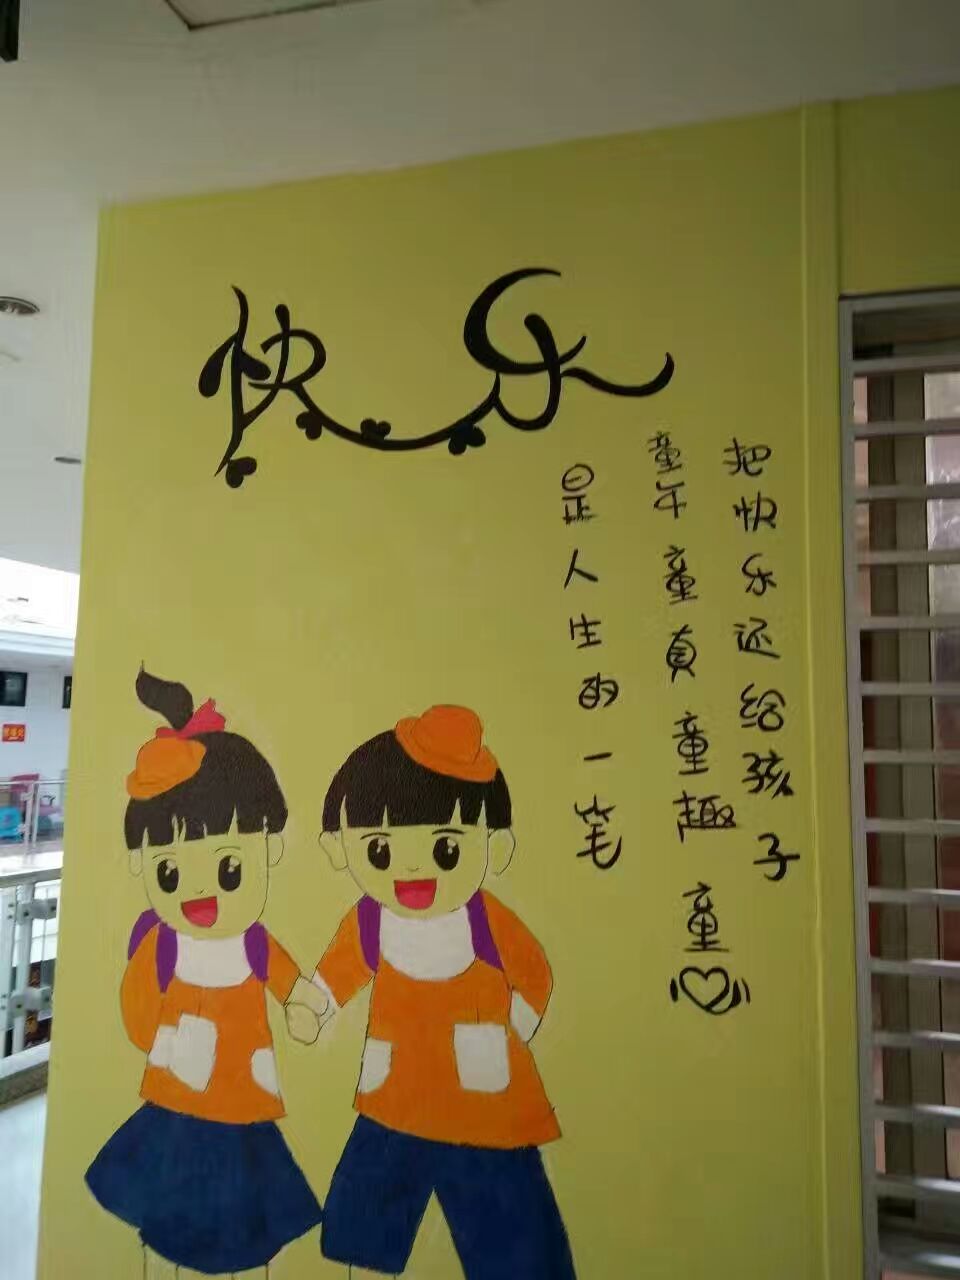 快乐
把快乐还给孩子
童年童真童趣童
是人生的一笔